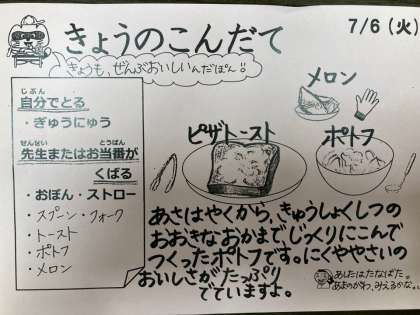 きょうのこんだて
7/6（火）
きょうも、ぜんぶおいしいんだぽん!!
自分でとる
じぶん
・ぎゅうにゅう
先生またはお当番が
せんせい とうばん
くばる
・おぼん・ストロー
・スプーン・フォーク
・トースト
・ポトフ
・メロン
メロン
ピザトースト
ポトフ
あさはやくから、きゅうしょくしつの
おおきなおかまでじっくりにこんで
つくったポトフです。にくややさいの
おいしさがたっぷり
でていますよ。
あしたはたなばた。
あまのがわ、みえるかな。